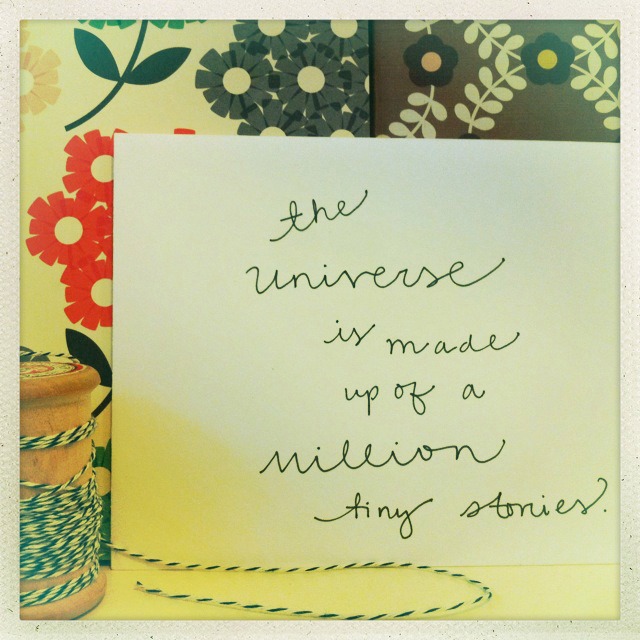 the
universe
is made
up of a
million
tiny stories.